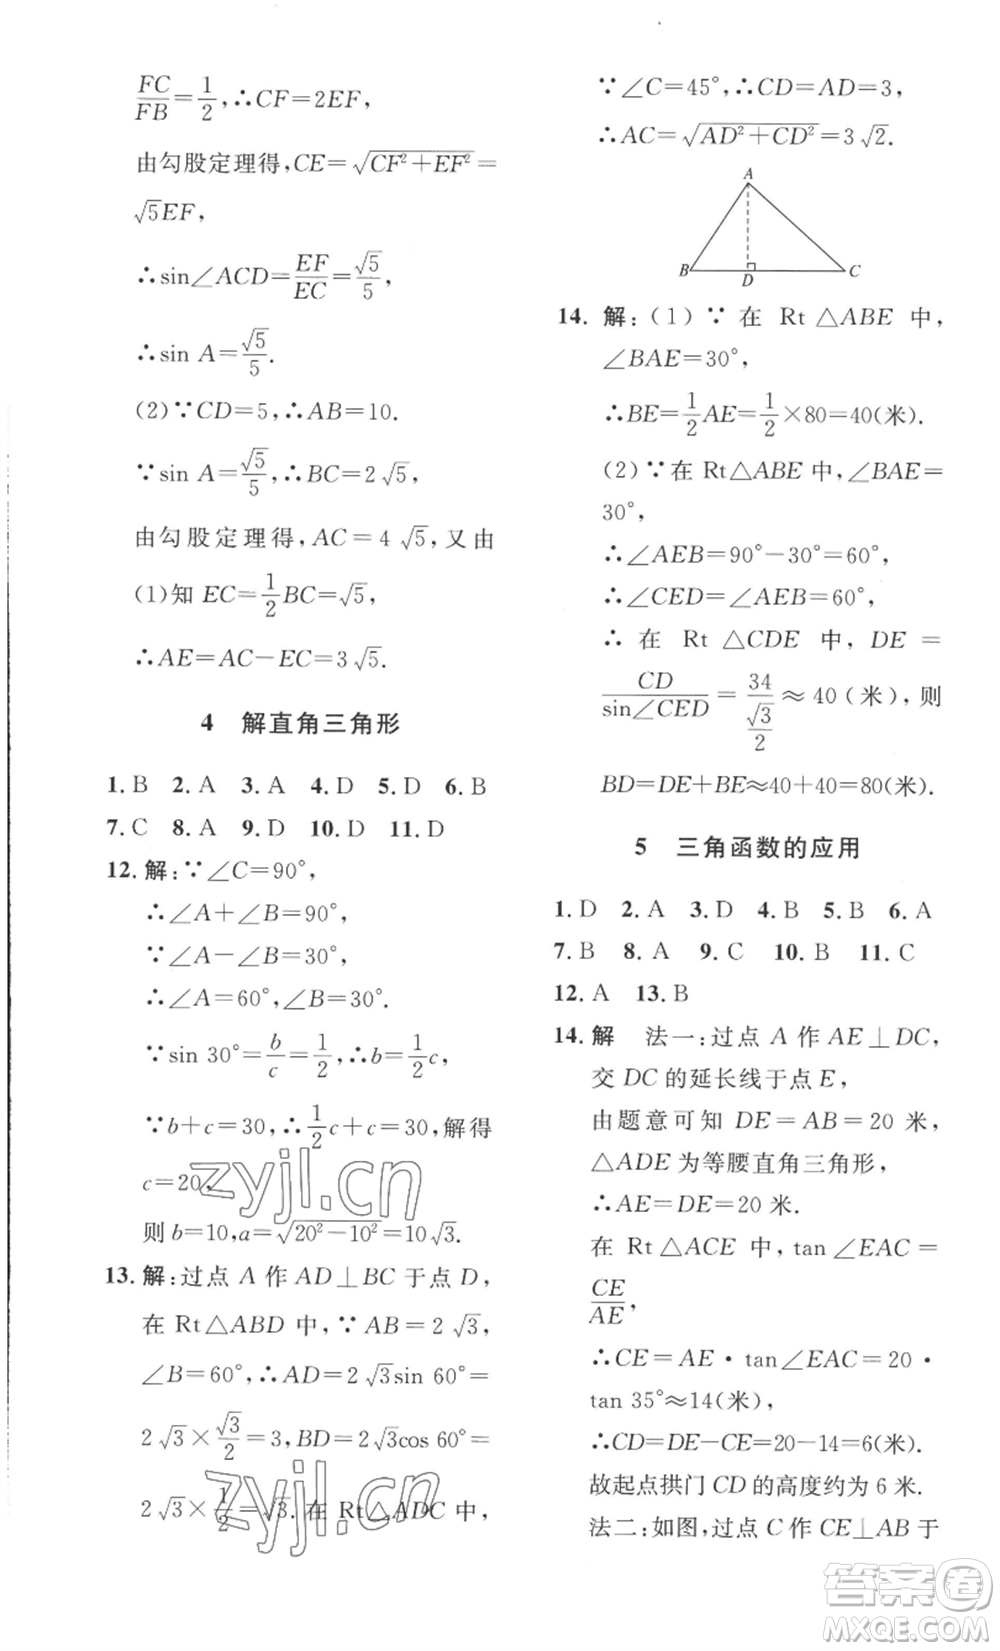 FC/FB=1/2,∴CF=2EF,
由勾股定理得,CE=√(CF²+EF²)=
√5EF,
∴sin∠ACD=EF/EC=√5/5,
∴sin A=√5/5.
(2)∵CD=5,∴AB=10.
∵sin A=√5/5,∴BC=2√5.
由勾股定理得,AC=4√5,又由
(1)知 EC=1/2BC=√5,
∴AE=AC−EC=3√5.
4 解直角三角形
1. B 2. A 3. A 4. D 5. D 6. B
7. C 8. A 9. D 10. D 11. D
12. 解:∵∠C=90°,
∴∠A+∠B=90°,
∵∠A−∠B=30°,
∴∠A=60°,∠B=30°.
∵sin 30°=b/c=1/2,∴b=1/2c,
∵b+c=30,∴1/2c+c=30,解得
c=20,
则 b=10,a=√(20²−10²)=10√3.
13. 解:过点 A 作 AD⊥BC 于点 D,
在 Rt△ABD 中,∵AB=2√3,
∠B=60°,∴AD=2√3sin 60°=
2√3×√3/2=3,BD=2√3cos 60°=
2√3×1/2=√3. 在 Rt△ADC 中,
∵∠C=45°,∴CD=AD=3,
∴AC=√(AD²+CD²)=3√2.
A
B D C
14. 解:(1)∵在 Rt△ABE 中,
∠BAE=30°,
∴BE=1/2AE=1/2×80=40(米).
(2)∵在 Rt△ABE 中,∠BAE=
30°,
∴∠AEB=90°−30°=60°,
∴∠CED=∠AEB=60°,
∴在 Rt△CDE 中,DE=
CD/sin∠CED=34/(√3/2)≈40(米),则
BD=DE+BE≈40+40=80(米).
5 三角函数的应用
1. D 2. A 3. D 4. B 5. B 6. A
7. B 8. A 9. C 10. B 11. C
12. A 13. B
14. 解 法一:过点 A 作 AE⊥DC,
交 DC 的延长线于点 E,
由题意可知 DE=AB=20 米,
△ADE 为等腰直角三角形,
∴AE=DE=20 米.
在 Rt△ACE 中,tan∠EAC=
CE/AE,
∴CE=AE·tan∠EAC=20·
tan 35°≈14(米),
∴CD=DE−CE=20−14=6(米).
故起点拱门 CD 的高度约为 6 米.
法二:如图,过点 C 作 CE⊥AB 于
zyjl.cn
zyjl.cn
答案卷
MXQE.COM